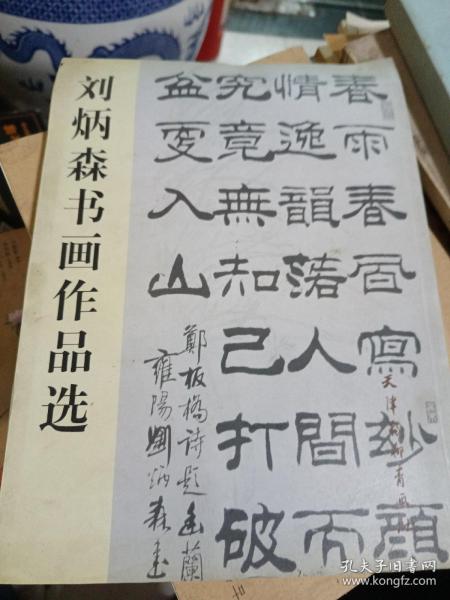 刘炳森书画作品选
春雨春風寫妙顏
情逸韻落人間而
究竟無知己打破
盆更入山
鄭板橋詩題幽蘭
雍陽劉炳森書
天津
孔夫子旧书网
www.kongfz.com